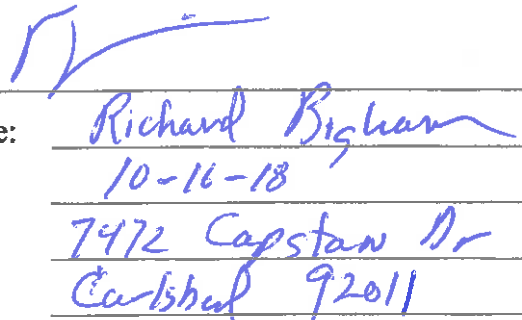 e:
Richard Bigham
10-16-18
7472 Capstan Dr
Carlsbad 92011